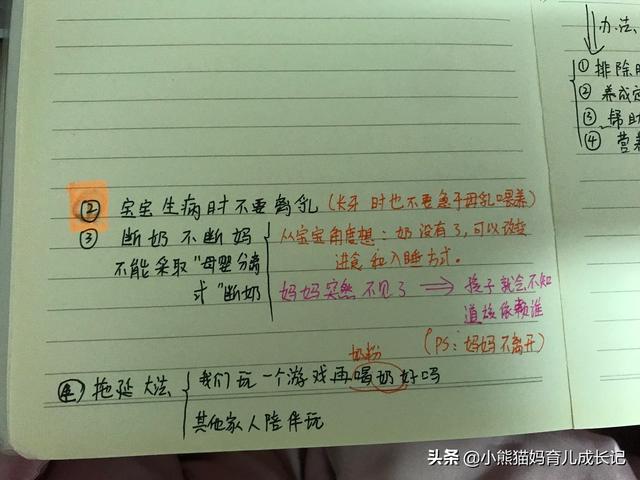 ② 宝宝生病时不要离乳 (长牙时也不要急于母乳喂养)
③ 断奶不断妈
不能采取"母婴分离
式"断奶
从宝宝角度想：奶没有了，可以改变
进食和入睡方式。
妈妈突然不见了 ⟹ 孩子就会不知
道该依赖谁
(PS：妈妈不离开)
④ 拖延大法
奶粉
我们玩一个游戏再喝奶好吗
其他家人陪伴玩
办法、
① 排除
② 养成
③ 帮助
④ 营养
头条 @小熊猫妈育儿成长记